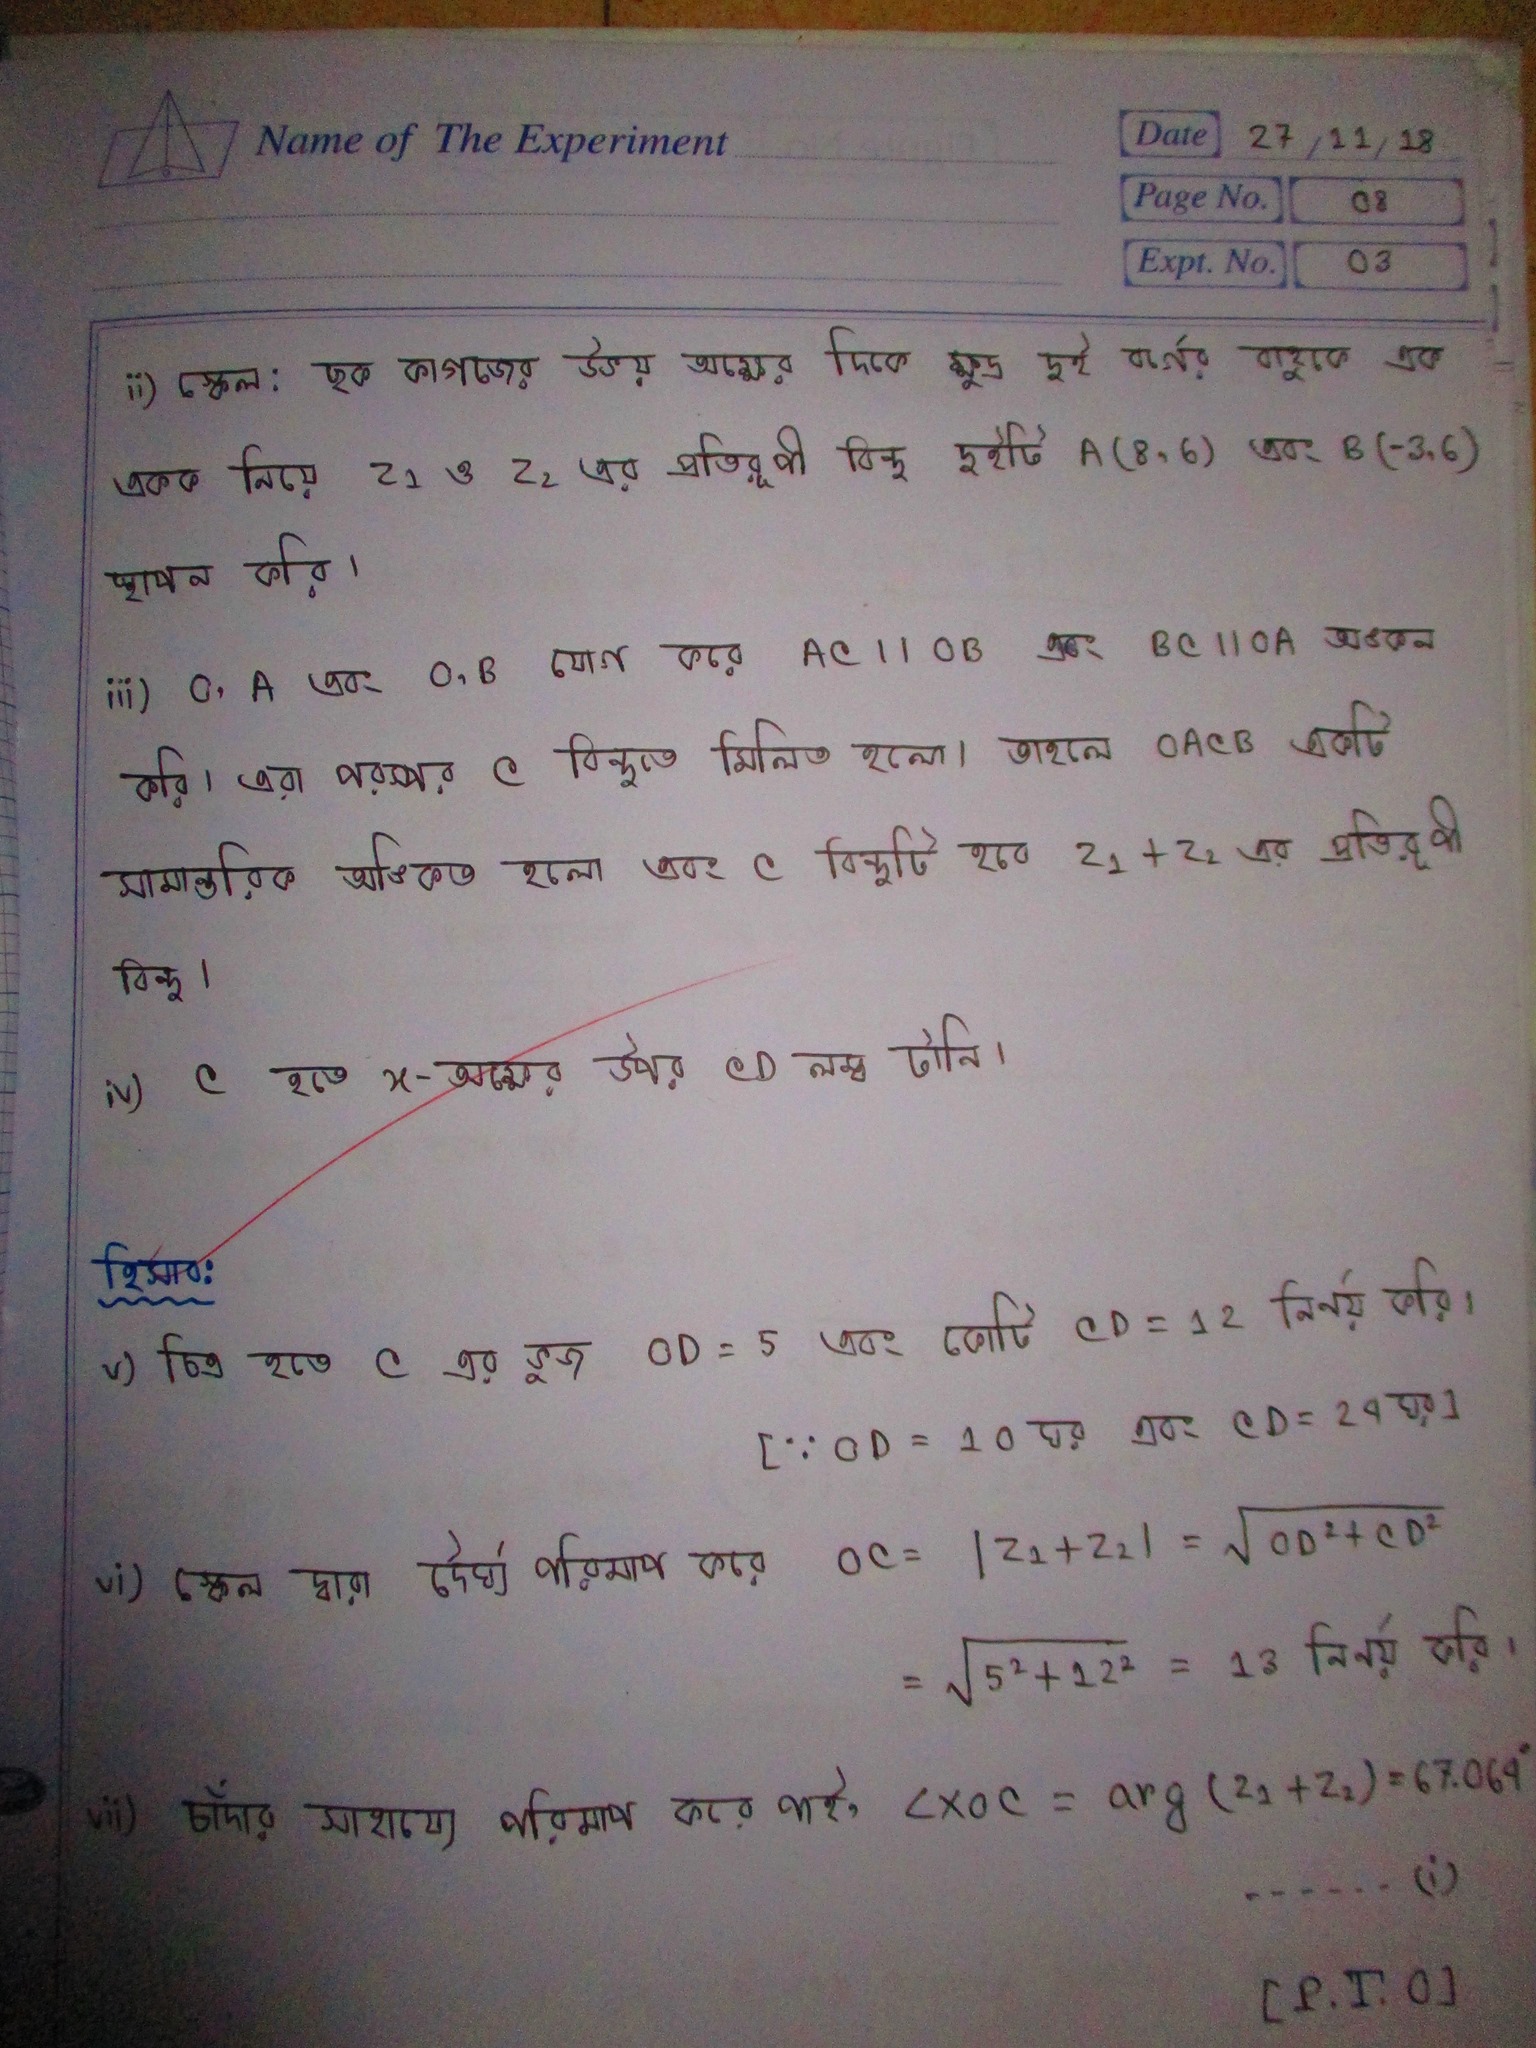 Name of The Experiment
Date 27/11/18
Page No. 08
Expt. No. 03
ii) স্কেল: ছক কাগজের উভয় অক্ষের দিকে ক্ষুদ্র দুই বর্গের বাহুকে এক
একক নিয়ে Z₁ ও Z₂ এর প্রতিরূপী বিন্দু দুইটি A(8,6) এবং B(-3,6)
স্থাপন করি।
iii) O, A এবং O, B যোগ করে AC||OB এবং BC||OA অংকন
করি। এরা পরস্পর C বিন্দুতে মিলিত হলো। তাহলে OACB একটি
সামান্তরিক অংকিত হলো এবং C বিন্দুটি হবে Z₁+Z₂ এর প্রতিরূপী
বিন্দু।
iv) C হতে x-অক্ষের উপর CD লম্ব টানি।
হিসাব:
v) চিত্র হতে C এর ভূজ OD = 5 এবং কোটি CD = 12 নির্ণয় করি।
[∵ OD = 10 ঘর এবং CD = 24 ঘর]
vi) স্কেল দ্বারা দৈর্ঘ্য পরিমাপ করে OC = |Z₁+Z₂| = √OD²+CD²
= √5²+12² = 13 নির্ণয় করি।
vii) চাঁদার সাহায্যে পরিমাপ করে পাই, ∠XOC = arg (Z₁+Z₂) = 67.064°
------ (i)
[P.T.O]